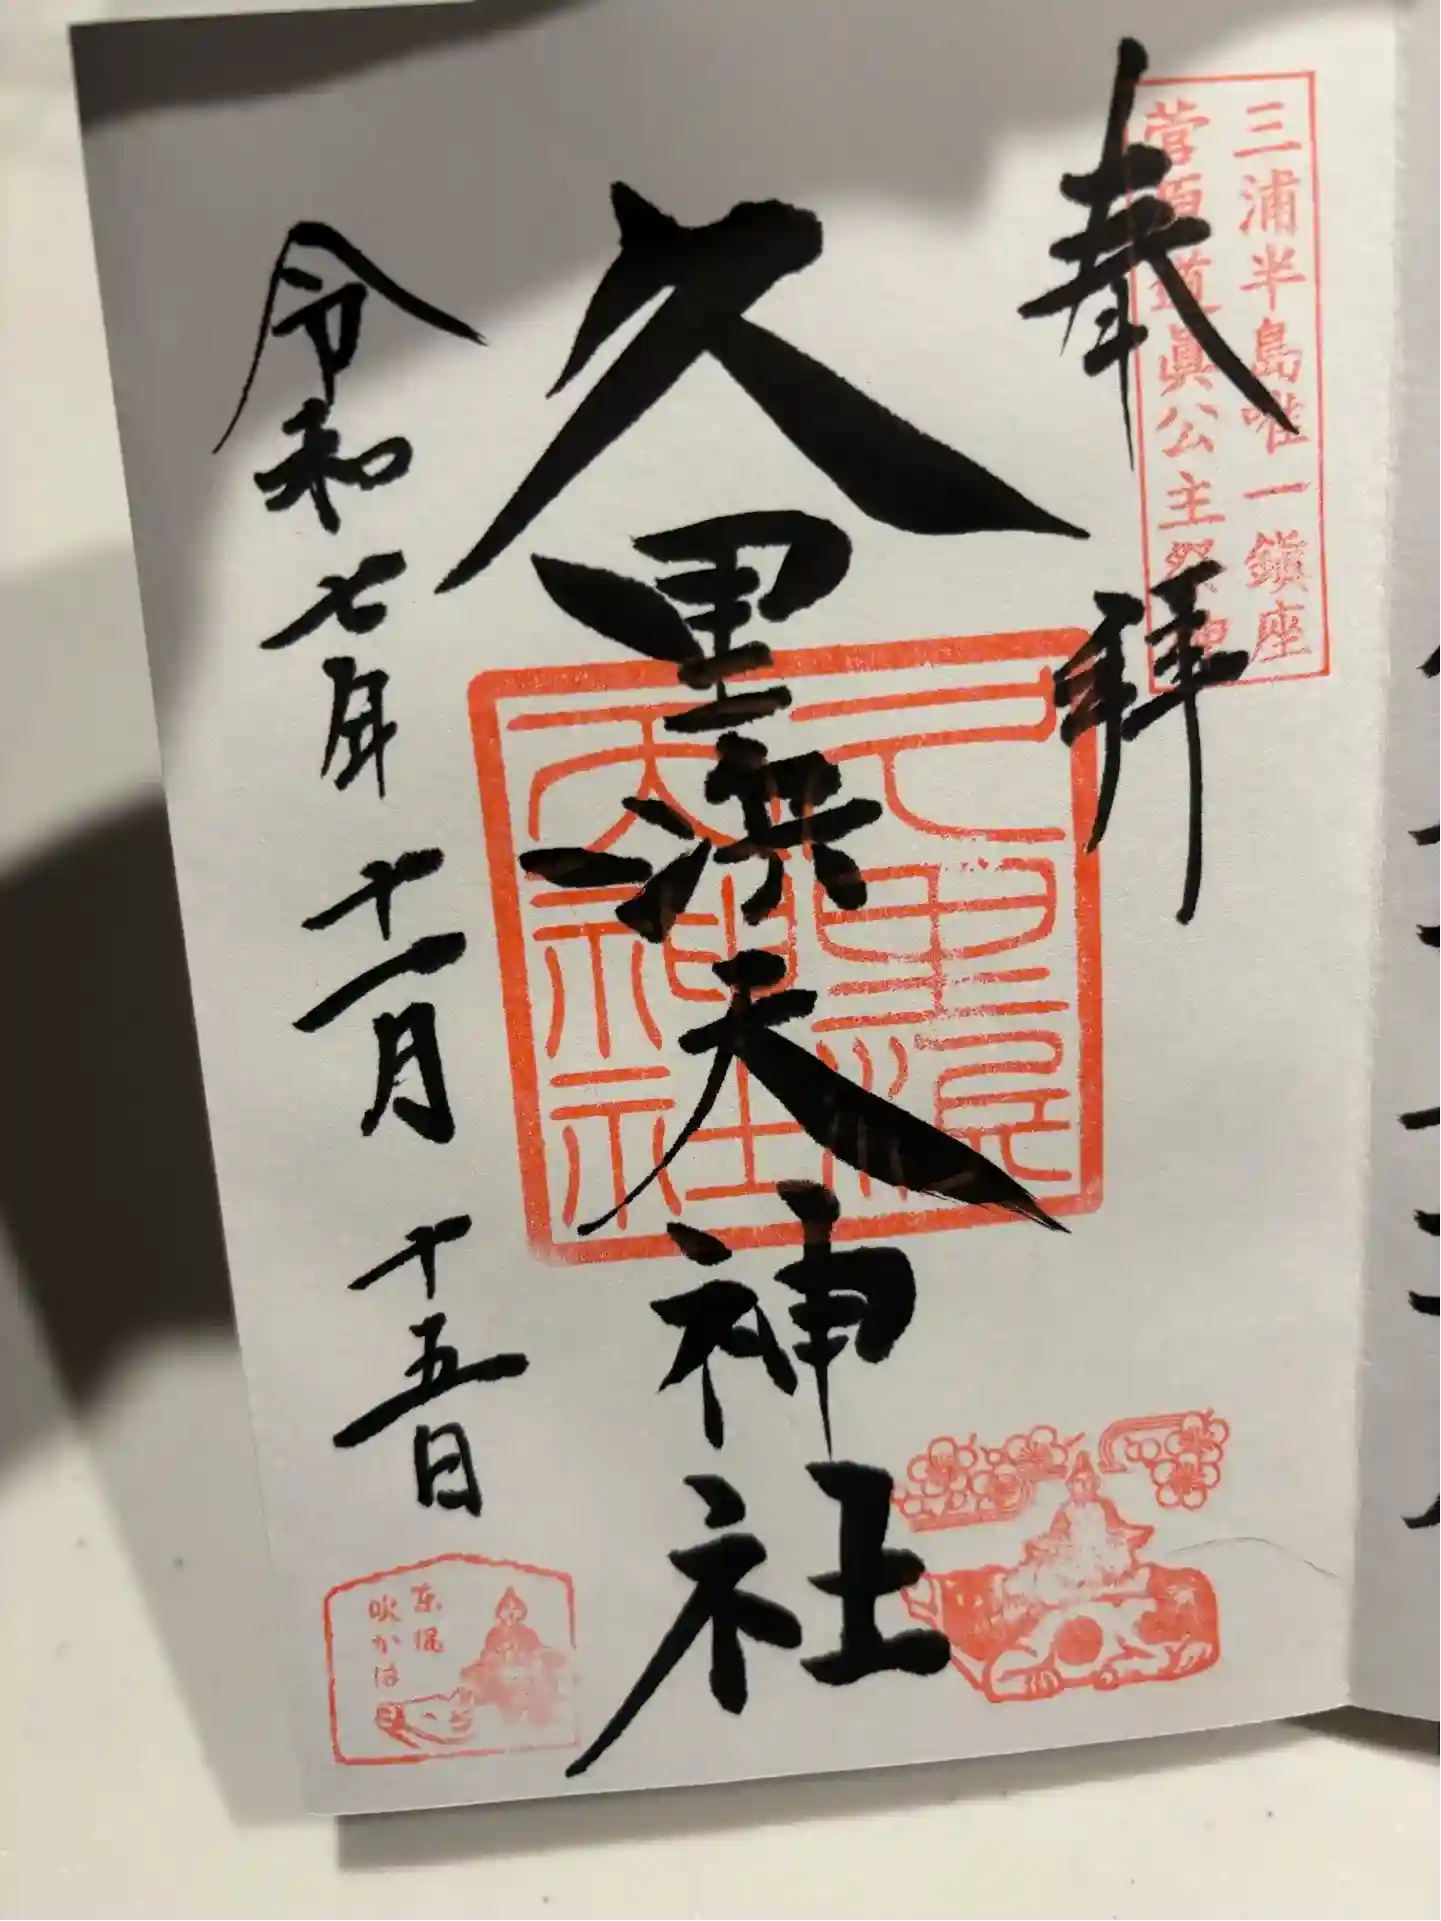 三浦半島唯一鎮座
菅原道眞公主祭神
奉拝
久里浜天神社
久里浜
天神社
令和七年十一月十五日
東風
吹かは